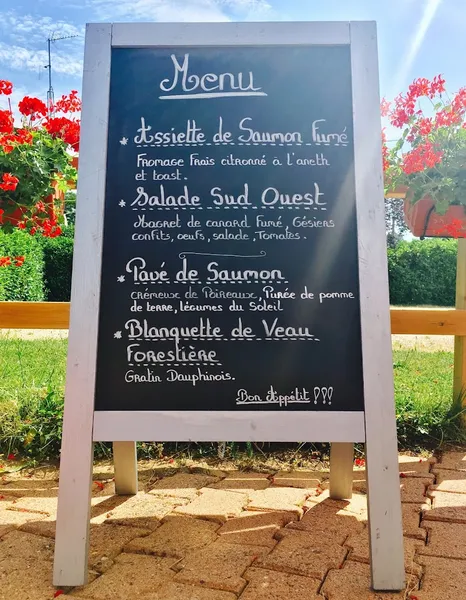 Menu
* Assiette de Saumon Fumé
Fromage Frais citronné à l'aneth
et toast.
* Salade Sud Ouest
Magret de canard Fumé, Gésiers
confits, oeufs, salade, Tomates.
* Pavé de Saumon
crémeux de Poireaux, Purée de pomme
de terre, légumes du Soleil
* Blanquette de Veau
Forestière
Gratin Dauphinois.
Bon Appétit !!!